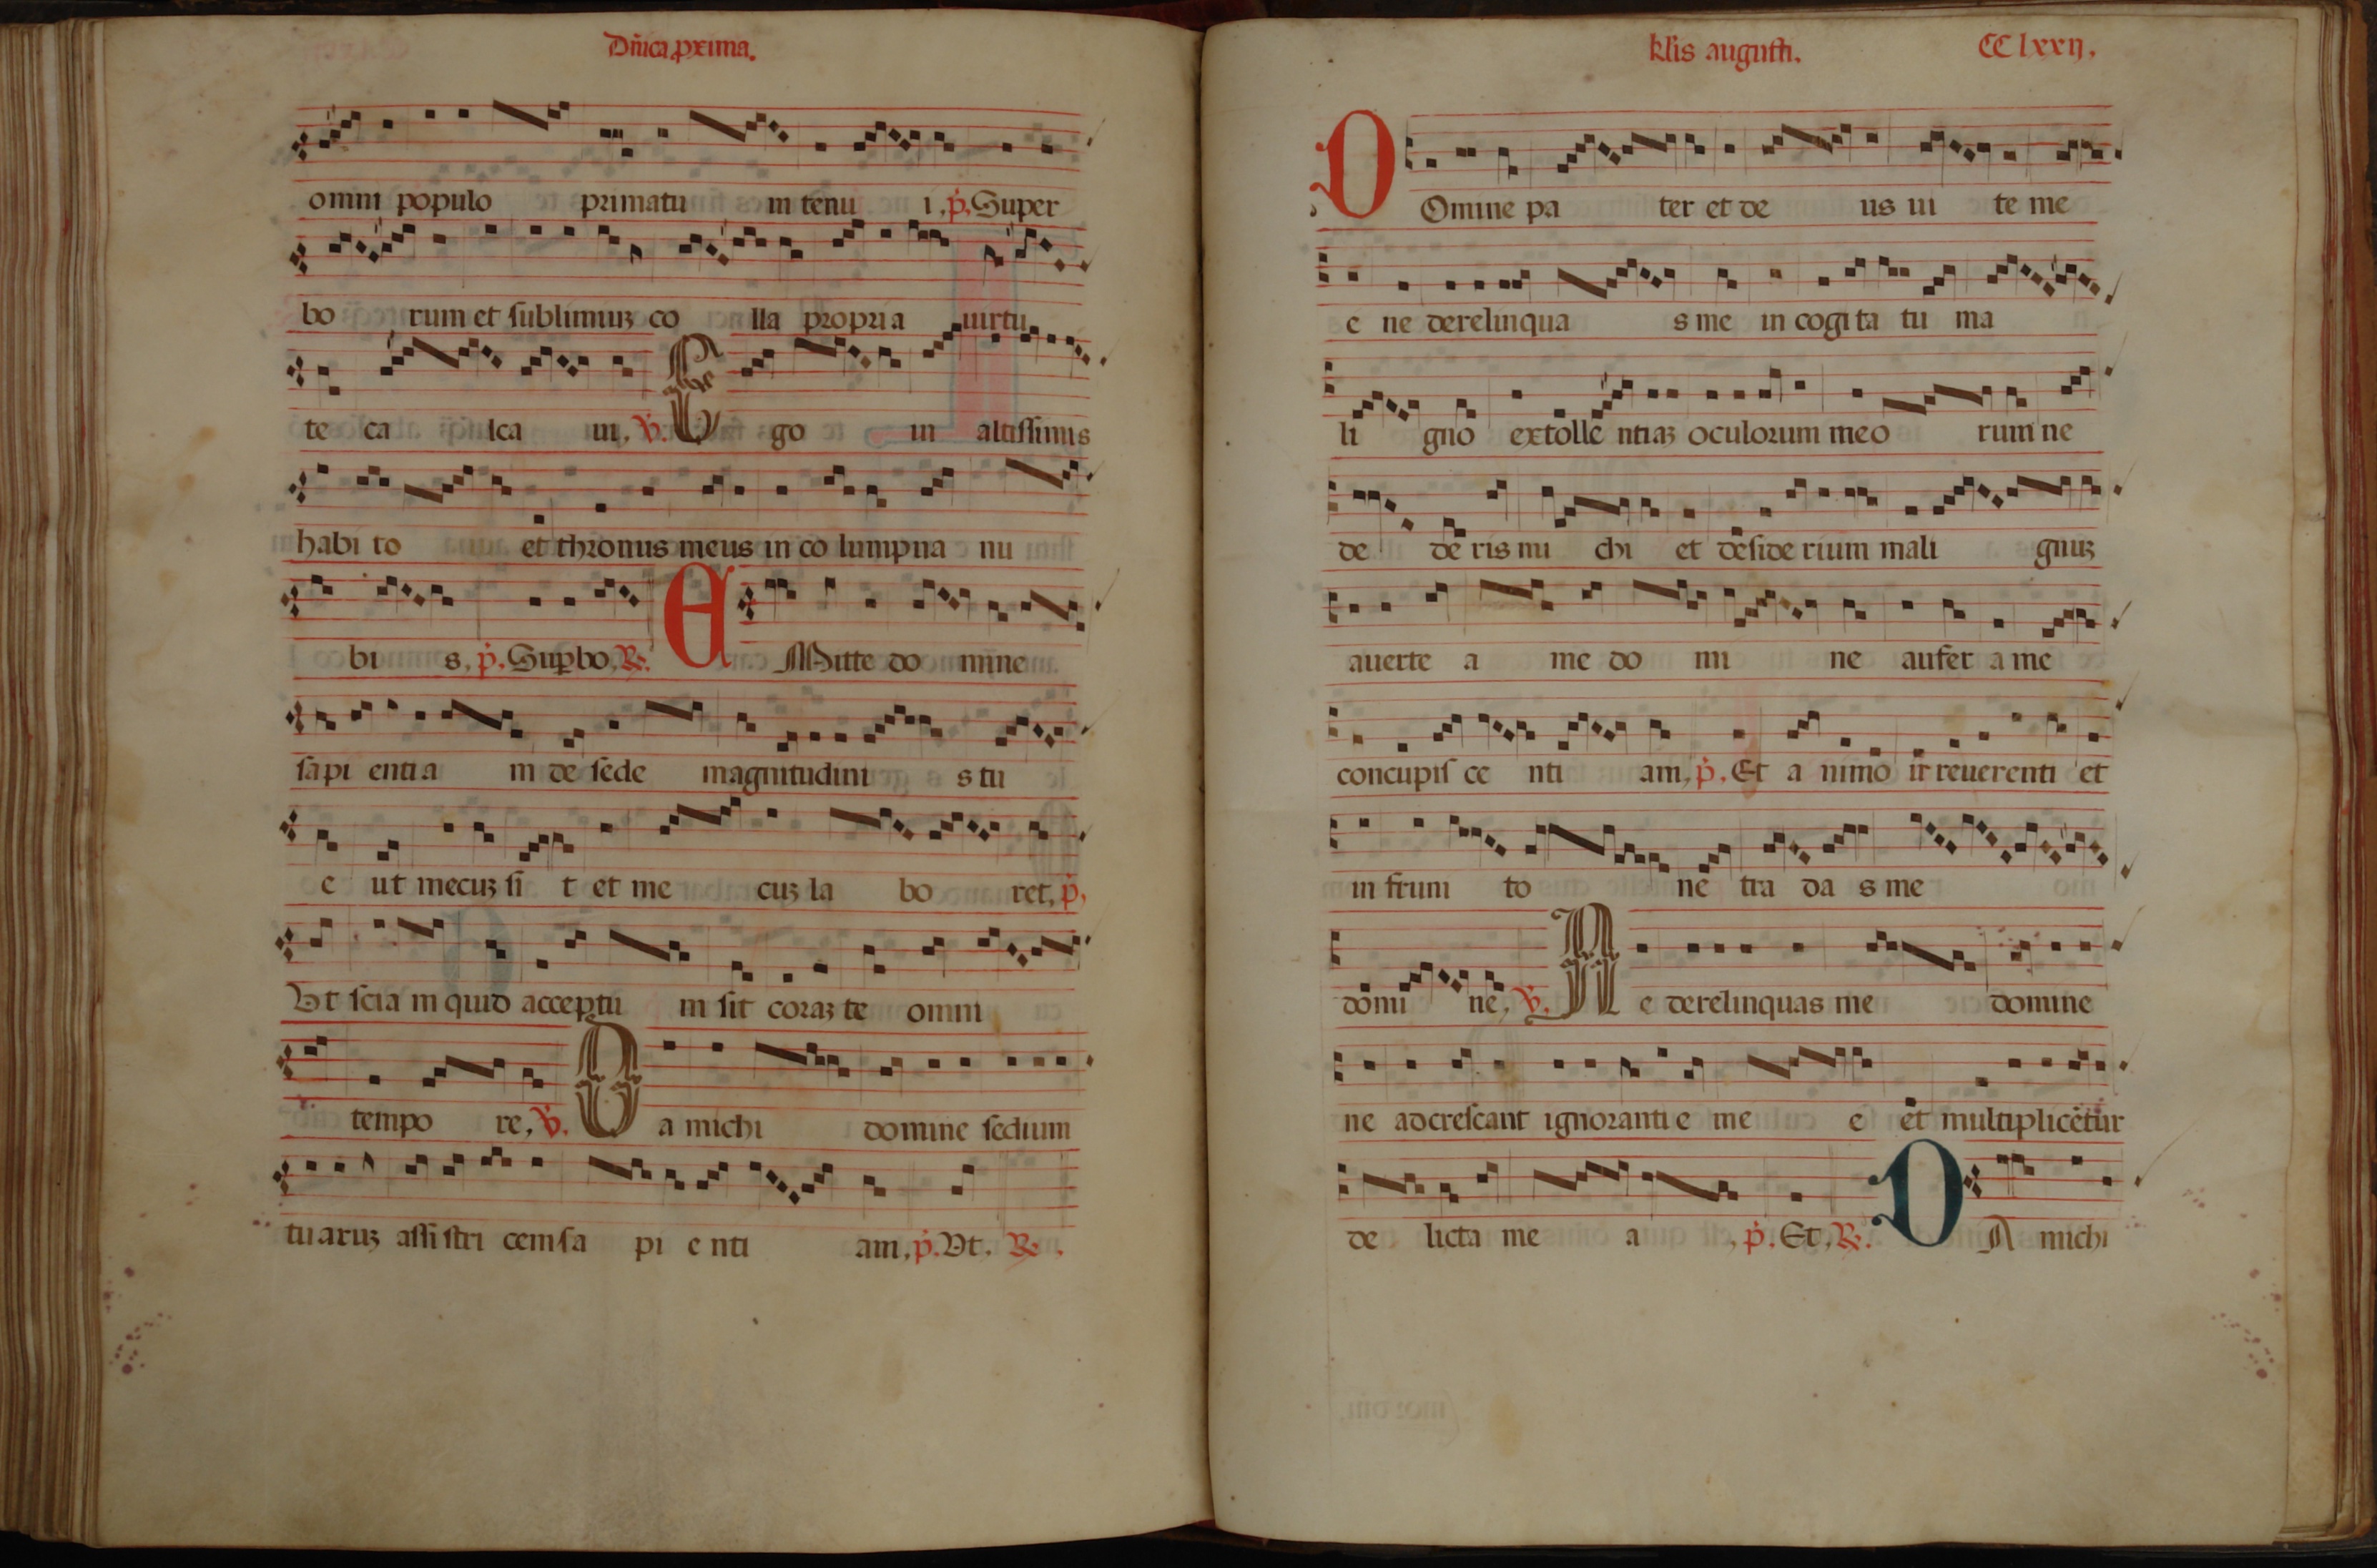 Dñica pxima.
omni populo primatu m tenu i, p. Super
bo rum et sublimiuʒ co lla propria uirtu
te ca lca ui, V. Ego in altissimis
habi to et thronus meus in co lumpna nu
bi s, p. Supbo, R. E Mitte do mine
sapi enti a m de sede magnitudini s tu
e ut mecuʒ si t et me cuʒ la bo ret, p.
Vt scia m quid acceptu m sit coraʒ te omni
tempo re, V. D a michi domine sedium
tuaruʒ assi stri cem sa pi e nti am, p. Vt, R.
klis augusti. CC lxxij.
D Omine pa ter et de us ui te me
e ne derelinqua s me in cogi ta tu ma
li gno extolle ntiaʒ oculorum meo rum ne
de de ris mi chi et deside rium mali gnuʒ
auerte a me do mi ne aufer a me
concupis ce nti am, p. Et a nimo ir reuerenti et
in fruni to ne tra da s me
domi ne, V. N e derelinquas me domine
ne adcrescant ignoranti e me e et multiplicetur
de licta me a , p. Et, R. D A michi